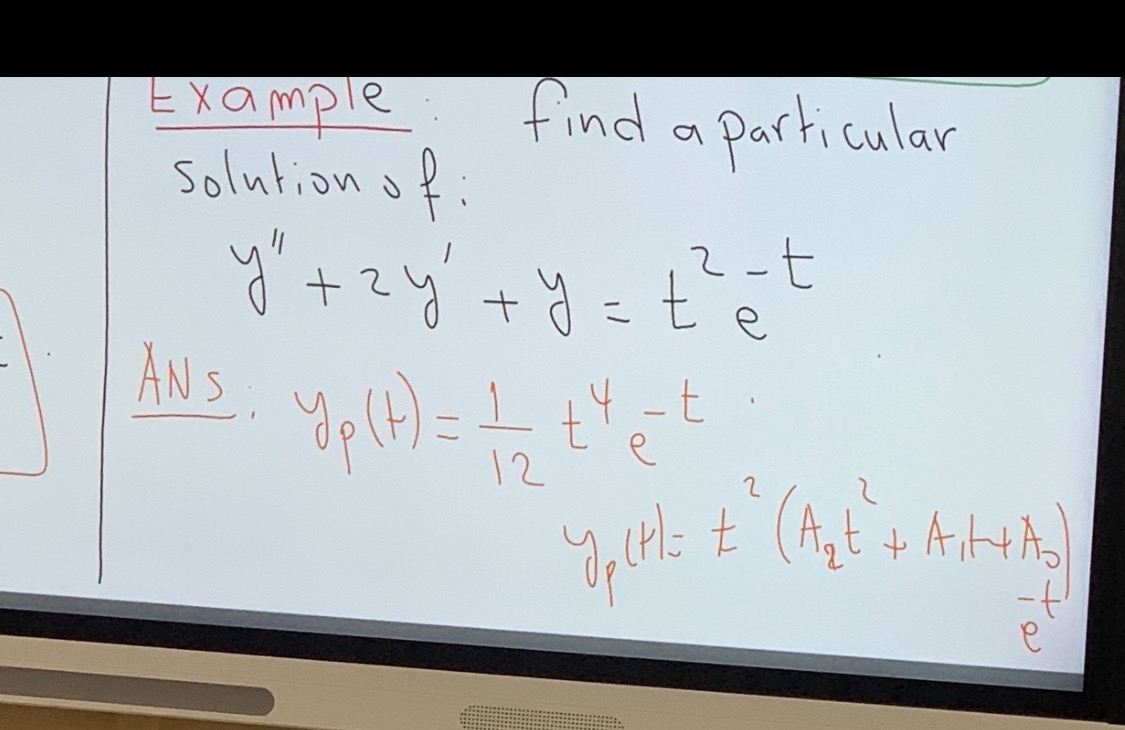 Example : find a particular
solution of :
y'' + 2y' + y = t² e^{-t}
ANS : yₚ(t) = 1/12 t⁴ e^{-t} .
yₚ(t) = t² (A₂t² + A₁t + A₀) e^{-t}